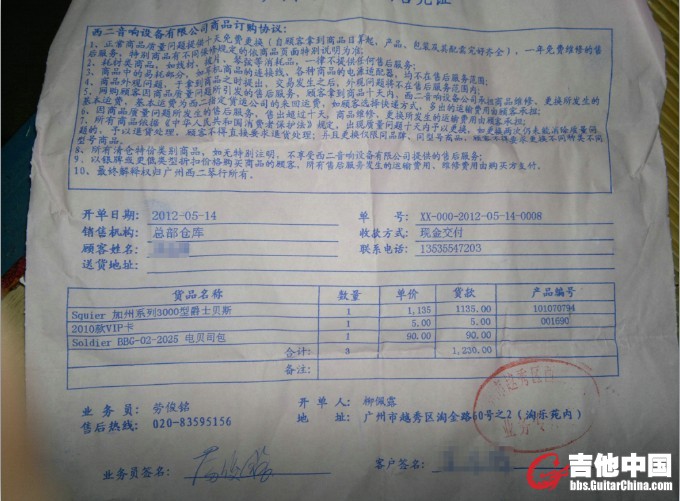 西二音响设备有限公司商品订购协议:
1、正常商品质量问题提供十天免费更换(自顾客拿到商品日算起,产品、包装及其配套完好齐全),一年免费维修的售
后服务,特别商品有不同保修规定的依商品页面特别说明为准;
2、耗材类商品,如线材,拨片、琴弦等消耗品,一律不提供任何售后服务;
3、商品中的易耗部分,如耳机商品的连接线、各种商品的电源适配器,均不在售后服务范围;
4、商品外观问题,于拿到商品之时提出,交易发生之后,外观问题将不在售后服务范围内;
5、网购顾客因商品质量问题所引发的售后服务,顾客拿到商品十天内,西二音响设备公司承担商品维修、更换所发生的
基本运费,基本运费为西二指定货运公司的来回运费,如顾客选择快速方式,多出的运输费用由顾客承担;
6、因商品质量问题所发生的售后服务,售出超过十天,商品维修、更换所发生的运输费用由顾客承担;
7、所有商品依据《中华人民共和国消费者保护法》规定,出现质量问题十天内予以更换,如更换两次仍未能消除质量问
题的,予以退货处理,顾客不得直接要求退货处理;并且更换仅限同品牌、同型号商品,顾客不得要求更换不同种类不同
型号商品。
8、所有清仓特价类别商品,如无特别注明,不享受西二音响设备有限公司提供的售后服务;
9、以银牌或更低类型折扣价格购买商品的顾客,所有售后服务发生的运输费用、维修费用由购买方支付。
10、最终解释权归广州西二琴行所有。
开单日期: 2012-05-14 单 号: XX-000-2012-05-14-0008
销售机构: 总部仓库 收款方式: 现金交付
顾客姓名: 联系电话: 13535547203
送货地址:
货品名称 数量 单价 货款 产品编号
Squier 加州系列3000型爵士贝斯 1 1,135 1135.00 101070794
2010款VIP卡 1 5.00 5.00 001690
Soldier BBG-02-2025 电贝司包 1 90.00 90.00
合计: 3 1,230.00
备注:
业 务 员: 劳俊铭 开 单 人: 柳佩露
售后热线: 020-83595156 地 址: 广州市越秀区淘金路60号之2(淘乐苑内)
业务员签名: 客户签名:
吉他中国
bbs.GuitarChina.com